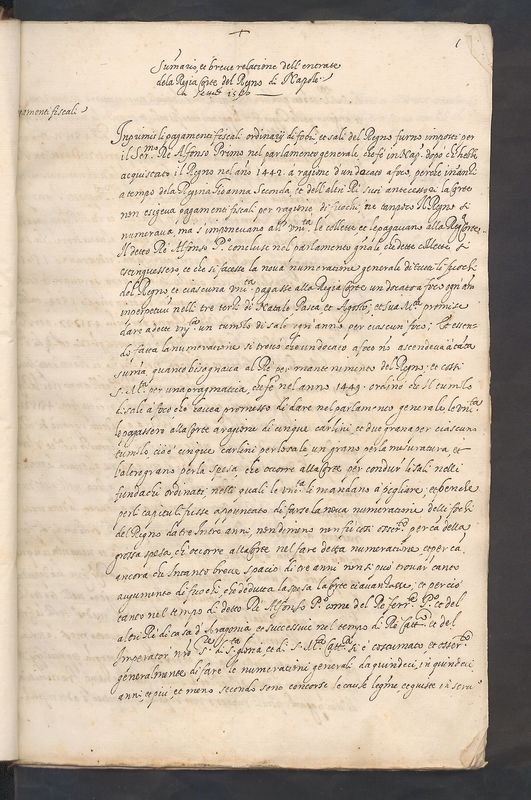 1
Sumario, et breve relatione dell'entrate
dela Regia Corte del Regno di Napoli
1580
pagamenti fiscali
Inprimis li pagamenti fiscali ordinarij di fochi, et sali del Regno furno imposti per
il Ser.mo Re Alfonso Primo nel parlamento generale, che fé in Nap. dopò ch'hebbe
acquistato il Regno nel año 1442. a ragione d'un ducato a foco, perche inanti
a tempo dela Regina Gioanna Seconda, et dell'altri Ri suoi antecessori la Corte
non esigeva pagamenti fiscali per ragione di fuochi, ne tanpoco il Regno si
numerava, ma s'imponevano all'Un.ta le collette et le pagavano alla Reg. Corte
Il detto Re Alfonso P.o concluse nel parlamento gñale che dette collette si
estinguessero, et che si facesse la nova numeratione generale di tutti li fuochi
del Regno et ciascuna Un.ta pagasse alla Regia Corte un ducato a foco ogn'año
imperpetuum nelli tre terzi di Natale Pasca et Agosto, et sua M.tà promise
dare a dette un.ta un tumolo di sale ogni anno per ciascun foco; Et essen-
do fatta la numeratione si trovò che un ducato a foco nõ ascendeva a tãta
suma, quanto bisognava al Re per mantenimento del Regno, et così
S. M.tà per una pragmatica, che fé nel anno 1449. ordinò che il tumolo
di sale a foco che havea promesso di dare nel parlamento generale, le Un.ta
lo pagassero alla Corte a ragione di cinque carlini, et due grana per ciascuno
tumolo cioè cinque carlini per lo sale un grano per la misuratura, et
l'altro grano per la spesa, che occorre alla Corte per condur li sali nelli
fundachi ordinati, nelli quali le un.ta li mandano à pigliare; et benche
per li capituli fusse appuntato di farse la nova numeratione delli fochi
del Regno da tre in tre anni, nondimeno non fù così osser.to per ca della
grossa spesa, ch'occorre alla Corte nel fare detta numeratione, et per cã
ancora che in tanto breve spacio di tre anni non si può trovar tanto
augumento di fuochi, che dedutta la spesa la Corte ci avantasse; et perciò
tanto nel tempo di detto Re Alfonso P.o come del Re Ferr.do P.o et del
altri Re di casa d'Aragonia et successive nel tempo di Re Catt.co et del
Imperator nro S.re di S.ta gloria, et di S. M.tà Catt.ca si è costumato, et osser.to
generalmente di fare le numerationi generali da quindeci, in quindeci
anni, et piu, et meno secondo sono concorse le cause legime, et giuste in servi